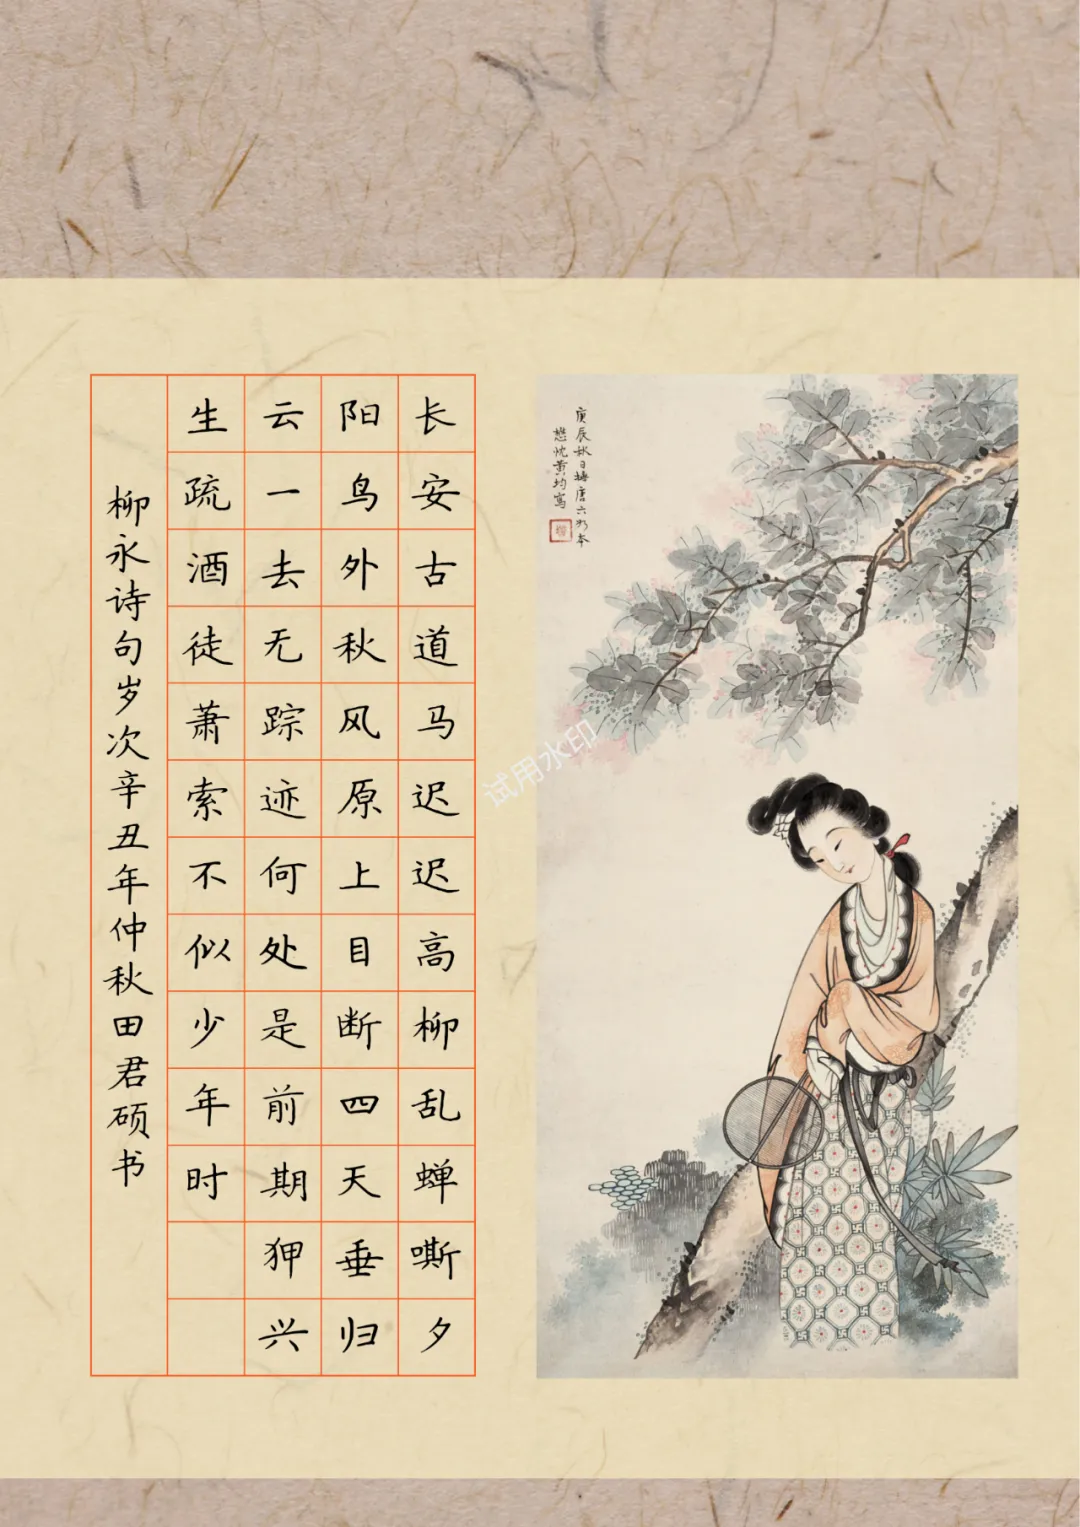 长安古道马迟迟高柳乱蝉嘶夕
阳鸟外秋风原上目断四天垂归
云一去无踪迹何处是前期狎兴
生疏酒徒萧索不似少年时
柳永诗句岁次辛丑年仲秋田君硕书
庚辰秋日橅唐六如本
懋忱黄均寫
试用水印